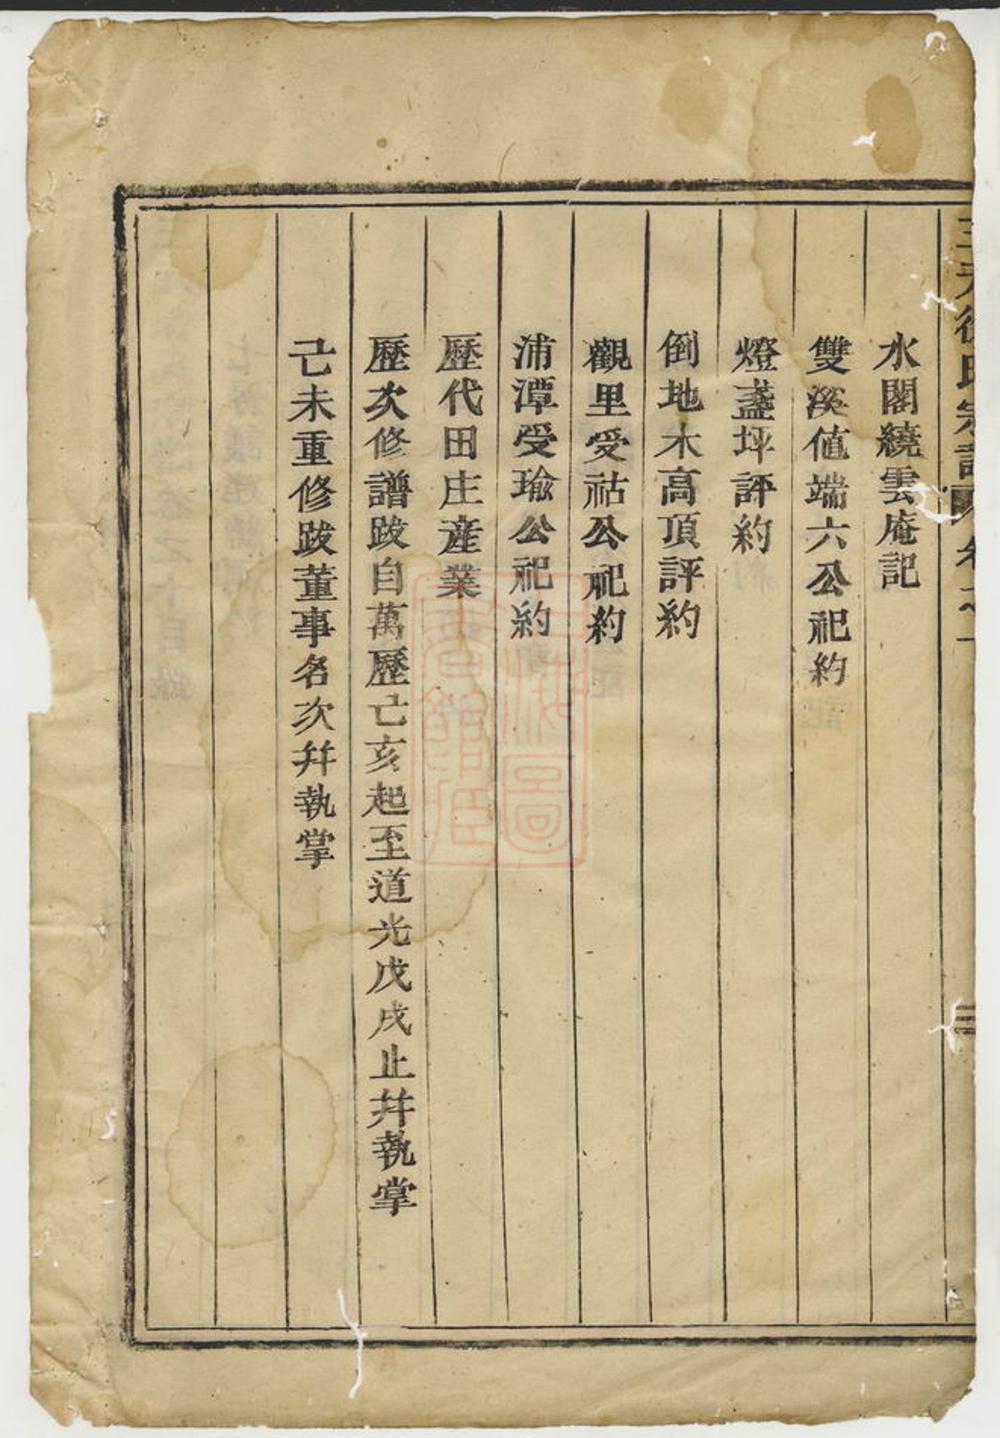 水閣繞雲庵記
雙溪値端六公祀約
燈盞坪評約
倒地木高頂評約
觀里受祜公祀約
浦潭受瑜公祀約
歷代田庄産業
歷次修譜跋自萬歷己亥起至道光戊戌止幷執掌
己未重修跋董事名次幷執掌